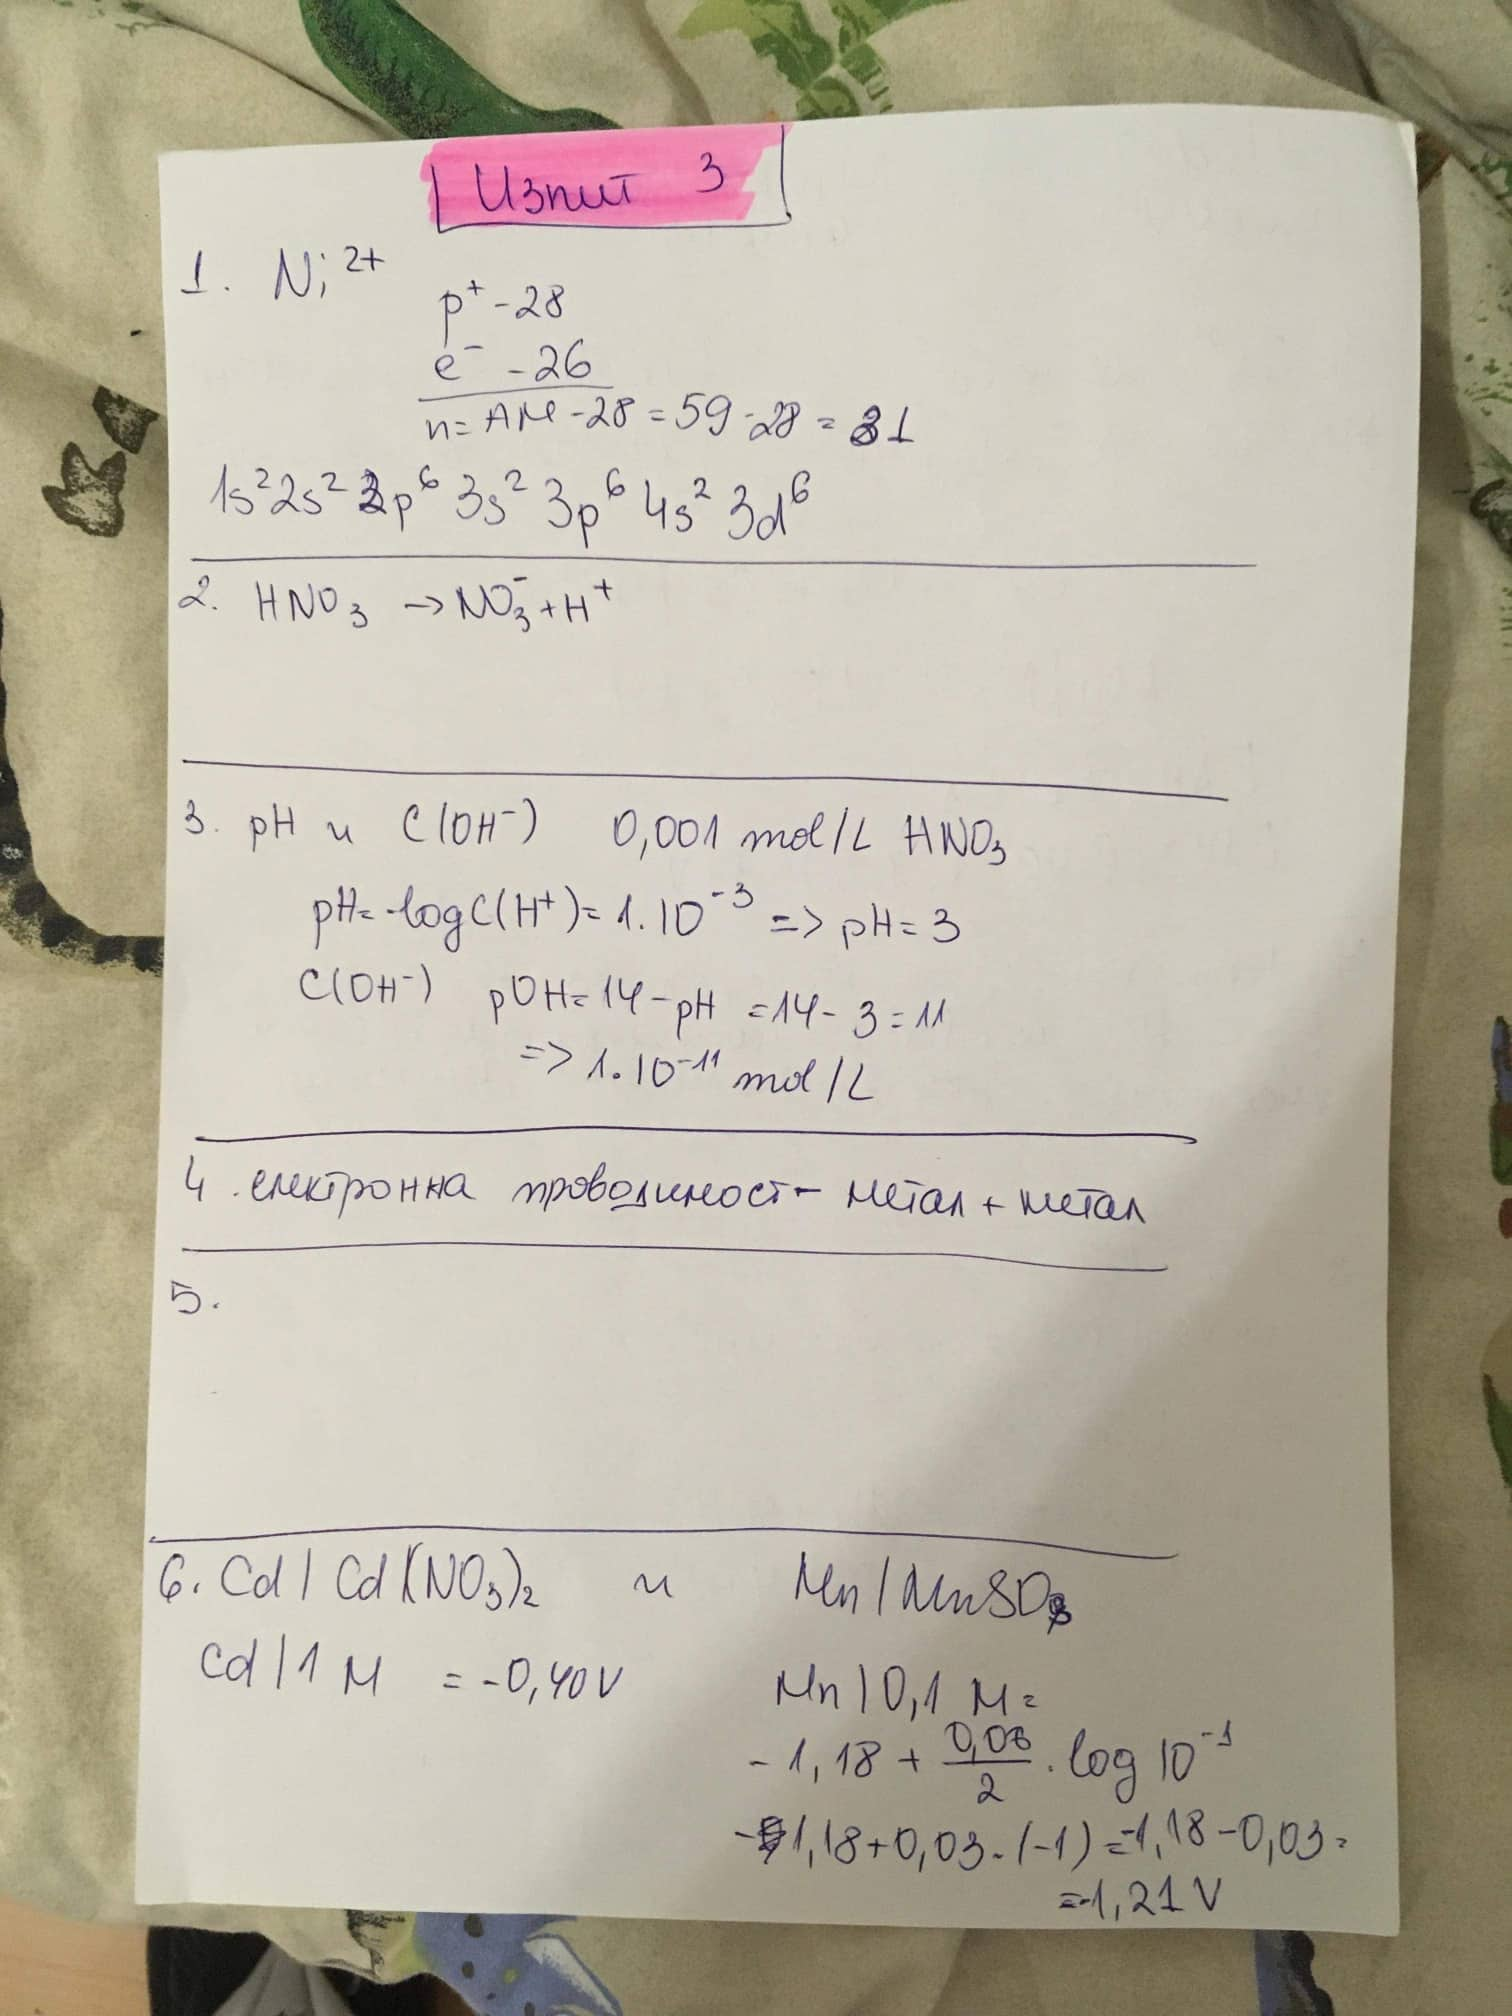 Изпит 3
1. Ni²⁺
p⁺ - 28
e⁻ - 26
n = AM - 28 = 59 - 28 = 31
1s² 2s² 2p⁶ 3s² 3p⁶ 4s² 3d⁶
2. HNO₃ → NO₃⁻ + H⁺
3. pH и C(OH⁻) 0,001 mol/L HNO₃
pH = -log C(H⁺) = 1.10⁻³ => pH = 3
C(OH⁻) pOH = 14 - pH = 14 - 3 = 11
=> 1.10⁻¹¹ mol/L
4. електронна проводимост - метал + метал
5.
6. Cd | Cd(NO₃)₂ и Mn | MnSO₃
Cd | 1 M = -0,40V
Mn | 0,1 M =
-1,18 + 0,06/2 . log 10⁻¹
-1,18 + 0,03 . (-1) = -1,18 - 0,03 =
= -1,21 V